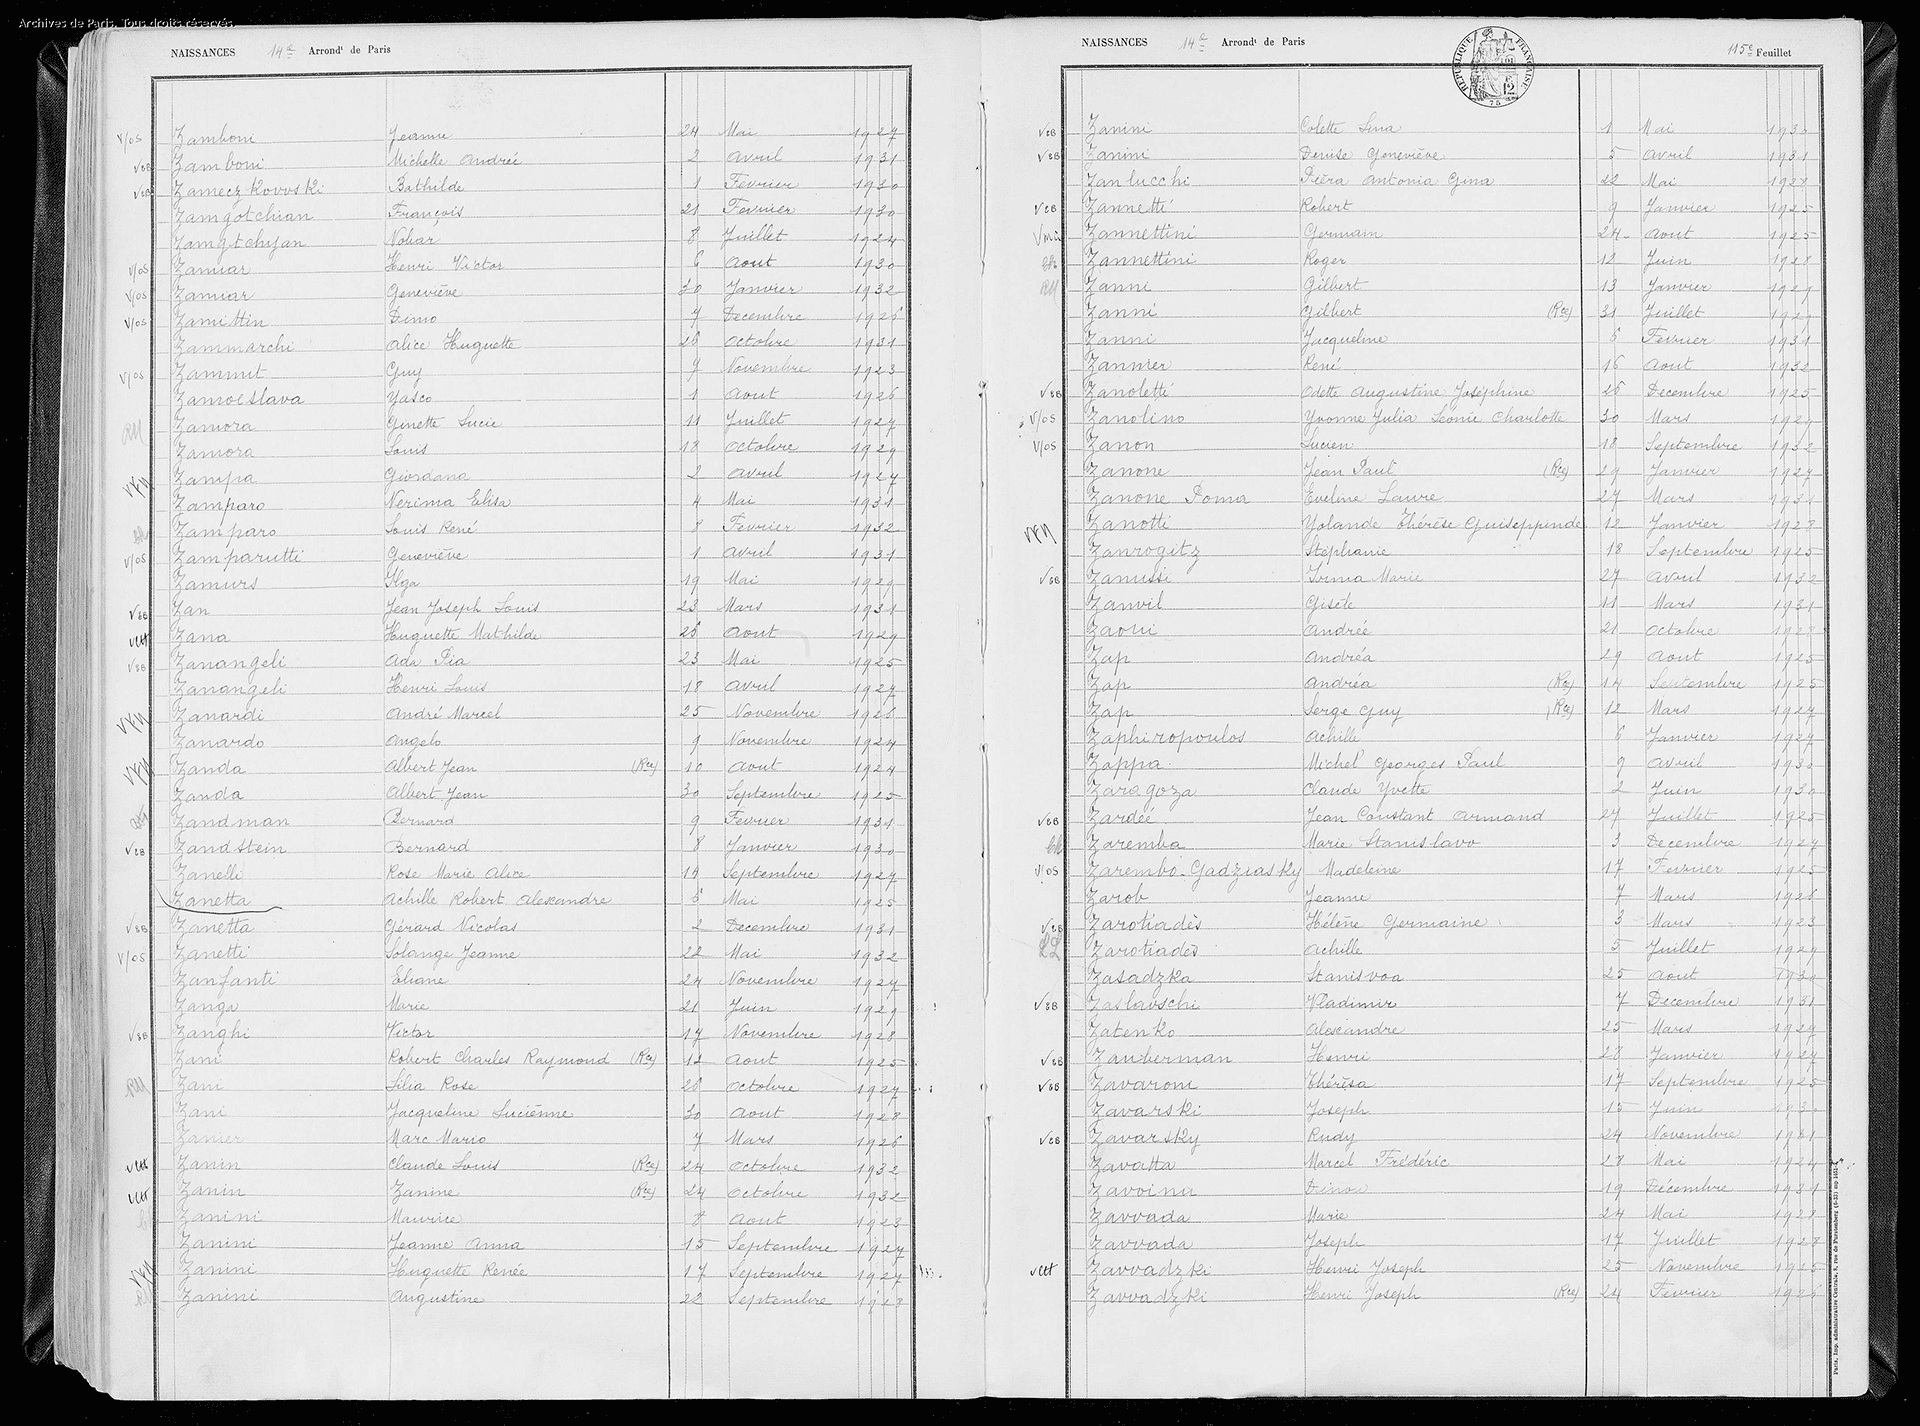 Archives de Paris. Tous droits réservés.
NAISSANCES 14e Arrondt de Paris
V/OS Zamboni Jeanne 24 Mai 1927
VBB Zamboni Michelle Andrée 2 Avril 1931
VBB Zameczkowski Bathilde 1 Février 1930
Zamgotchian François 21 Février 1930
Zamgtchyan Nobar 8 Juillet 1924
V/OS Zamiar Henri Victor 6 Aout 1930
V/OS Zamiar Geneviève 30 Janvier 1932
V/OS Zamittin Dimo 7 Decembre 1926
Zammarchi Alice Huguette 26 Octobre 1931
V/OS Zammit Guy 9 Novembre 1923
Zamoeslava Yasco 1 Aout 1926
Zamora Ginette Lucie 11 Juillet 1927
Zamora Louis 18 Octobre 1929
Zampa Giordana 2 Avril 1927
Zamparo Nerima Elisa 4 Mai 1931
Zamparo Louis René 8 Février 1932
V/OS Zamparutti Geneviève 1 Avril 1931
Zamurs Ilga 19 Mai 1929
VBB Zan Jean Joseph Louis 23 Mars 1931
Zana Huguette Mathilde 26 Aout 1929
VBB Zanangeli Ada Pia 23 Mai 1925
Zanangeli Henri Louis 18 Avril 1927
Zanardi André Marcel 25 Novembre 1926
Zanardo Angelo 9 Novembre 1924
Zanda Albert Jean (Rce) 10 Aout 1924
Zanda Albert Jean 30 Septembre 1925
Zandman Bernard 9 Février 1931
VBB Zandstein Bernard 8 Janvier 1930
Zanelli Rose Marie Alice 14 Septembre 1927
Zanetta Achille Robert Alexandre 5 Mai 1925
VBB Zanetta Gérard Nicolas 2 Decembre 1931
V/OS Zanetti Solange Jeanne 22 Mai 1932
Zanfanti Eliane 24 Novembre 1927
Zanga Marie 21 Juin 1929
VBB Zanghi Victor 17 Novembre 1928
Zani Robert Charles Raymond (Rce) 12 Aout 1925
Zani Silia Rose 26 Octobre 1927
Zani Jacqueline Lucienne 30 Aout 1928
Zanier Marc Mario 7 Mars 1926
Zanin Claude Louis (Rce) 24 Octobre 1932
Zanin Janine (Rce) 24 Octobre 1932
Zanini Maurice 8 Aout 1923
Zanini Jeanne Anna 15 Septembre 1927
Zanini Huguette Renée 17 Septembre 1927
Zanini Augustine 22 Septembre 1928
NAISSANCES 14e Arrondt de Paris 115e Feuillet
RÉPUBLIQUE FRANÇAISE
VBB Zanini Colette Lina 1 Mai 1930
VBB Zanini Denise Geneviève 5 Avril 1931
Zanlucchi Piéra Antonia Gina 22 Mai 1928
VBB Zannetti Robert 9 Janvier 1925
Zannettini Germain 24 Aout 1925
Zannettini Roger 12 Juin 1928
Zanni Gilbert 13 Janvier 1929
Zanni Gilbert (Rce) 31 Juillet 1929
Zanni Jacqueline 6 Février 1931
Zannier René 16 Aout 1932
VBB Zanoletti Odette Augustine Joséphine 26 Decembre 1925
V/OS Zanolino Yvonne Julia Léonie Charlotte 30 Mars 1929
V/OS Zanon Lucien 18 Septembre 1932
Zanone Jean Paul (Rce) 29 Janvier 1927
Zanone Poma Eveline Laure 27 Mars 1931
Zanotti Yolande Thérèse Guiseppinde 12 Janvier 1928
Zanrogitz Stéphanie 18 Septembre 1925
VBB Zanussi Irma Marie 27 Avril 1932
Zanvil Gisèle 11 Mars 1931
Zaoui Andrée 21 Octobre 1928
Zap Andréa 29 Aout 1925
Zap Andréa (Rce) 14 Septembre 1925
Zap Serge Guy (Rce) 12 Mars 1927
Zaphiropoulos Achille 6 Janvier 1927
Zappa Michel Georges Paul 9 Avril 1930
Zaragoza Claude Yvette 2 Juin 1930
VBB Zardée Jean Constant Armand 27 Juillet 1925
Zaremba Marie Stanislavo 3 Decembre 1927
V/OS Zarembo-Gadziasky Madeleine 17 Février 1925
Zarob Jeanne 7 Mars 1926
VBB Zarotiadès Hélène Germaine 3 Mars 1923
Zarotiadès Achille 5 Juillet 1929
Zasadzka Stanisvoa 25 Aout 1930
VBB Zaslavschi Vladimir 7 Decembre 1931
Zatenko Alexandre 25 Mars 1929
VBB Zauberman Henri 28 Janvier 1927
VBB Zavaroni Thérèsa 17 Septembre 1925
Zavarski Joseph 15 Juin 1930
VBB Zavarsky Rudy 24 Novembre 1931
Zavatta Marcel Frédéric 28 Mai 1924
Zavoina Dinov 19 Décembre 1931
Zavvada Marie 24 Mai 1928
Zavvada Joseph 17 Juillet 1928
Zavvadzki Henri Joseph 25 Novembre 1925
Zavvadzki Henri Joseph (Rce) 24 Février 1926